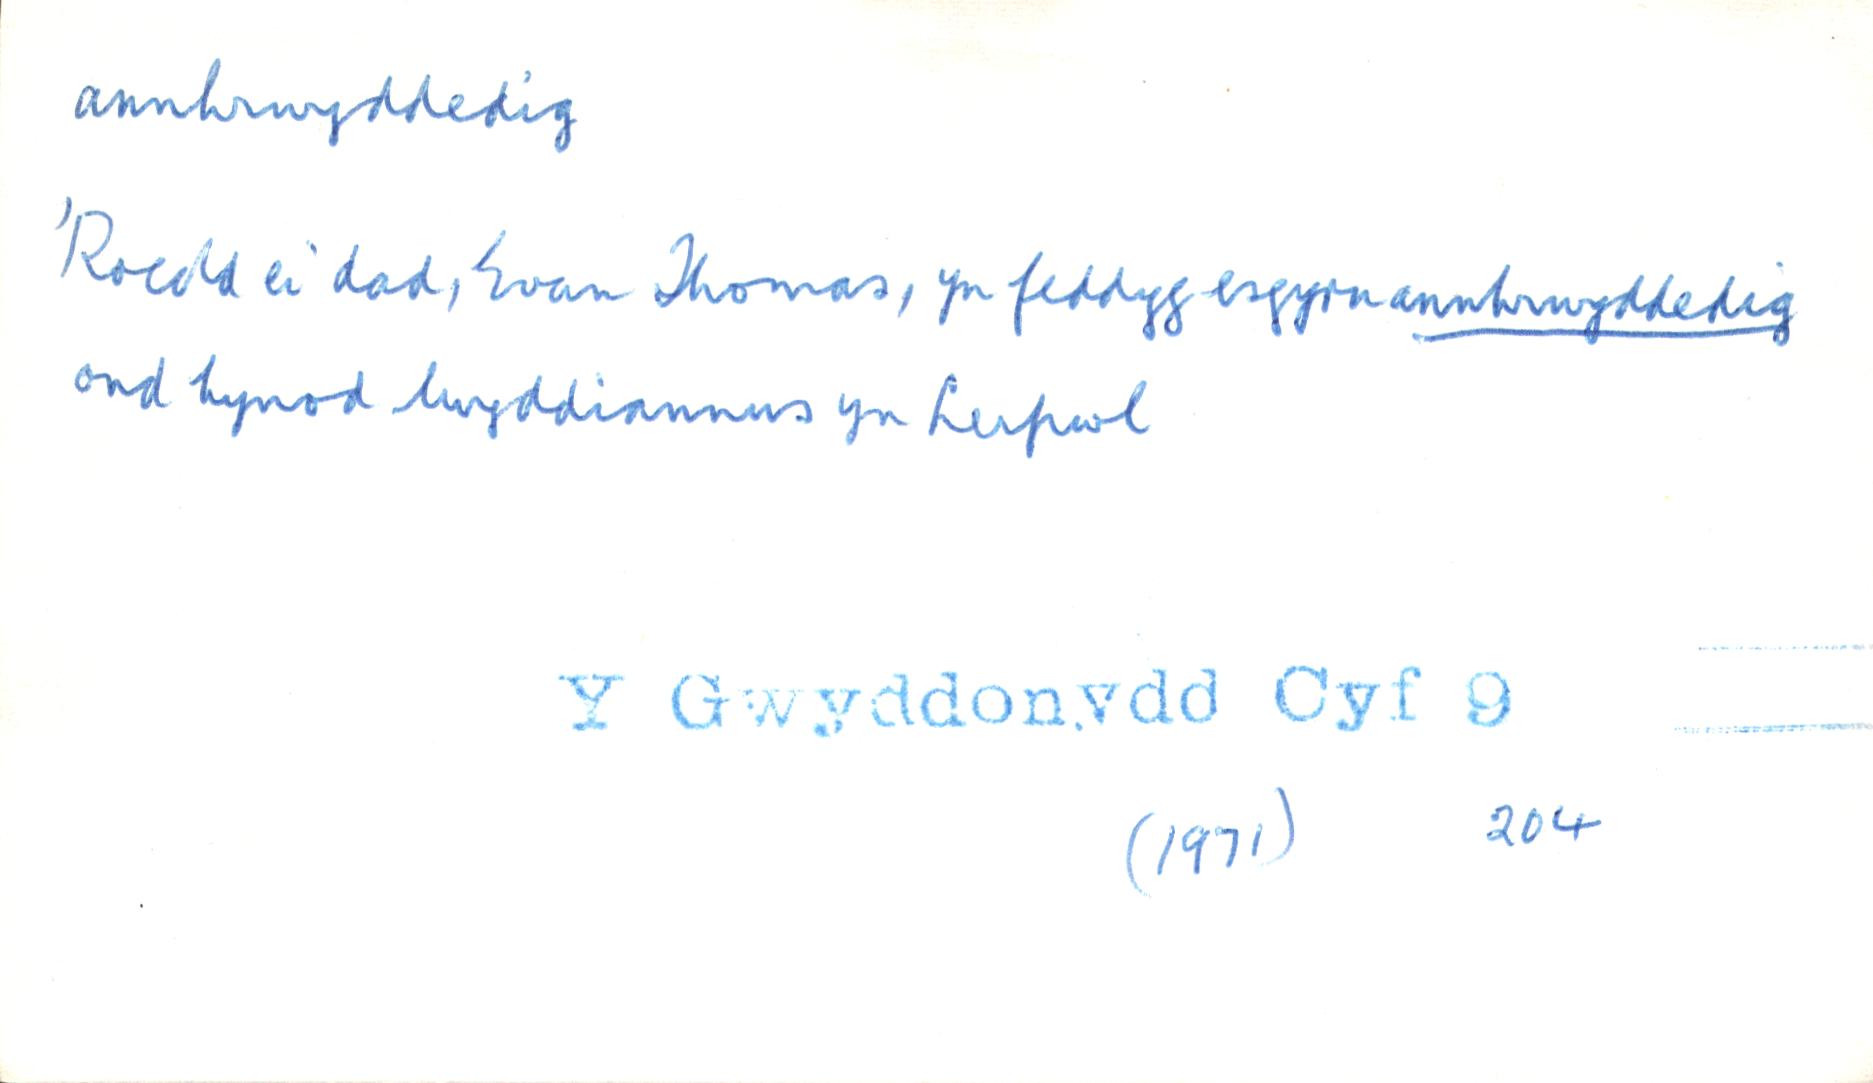 annhrwyddedig
'Roedd ei dad, Evan Thomas, yn feddyg esgyrn annhrwyddedig
ond hynod lwyddiannus yn Lerpwl
Y Gwyddonydd Cyf 9
(1971) 204